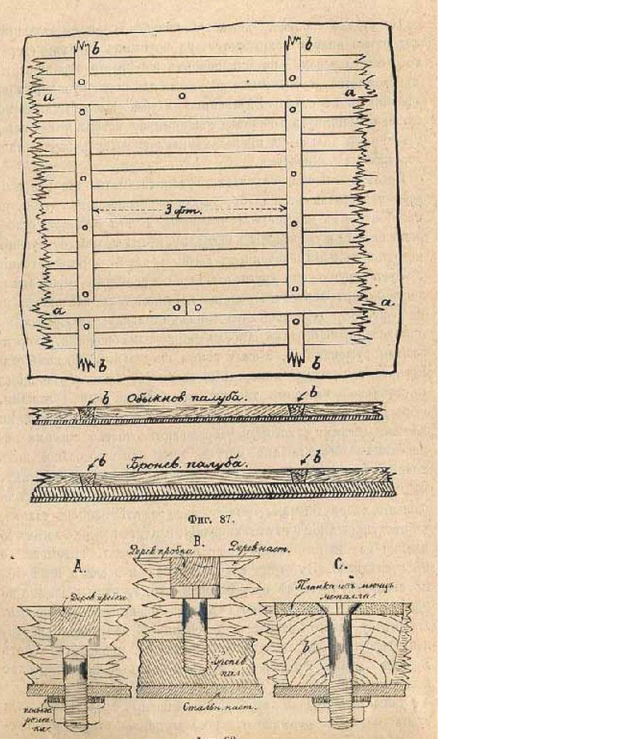 b
b
a
a
3 фт.
a
a.
b
b
b Обыкнов. палуба. b
b Бронев. палуба. b
Фиг. 87.
A.
B.
C.
Дерев пробка
Дерев наст.
Дерев пробка
Планка изъ
металла
b
Броне
пал
Стальн. наст.